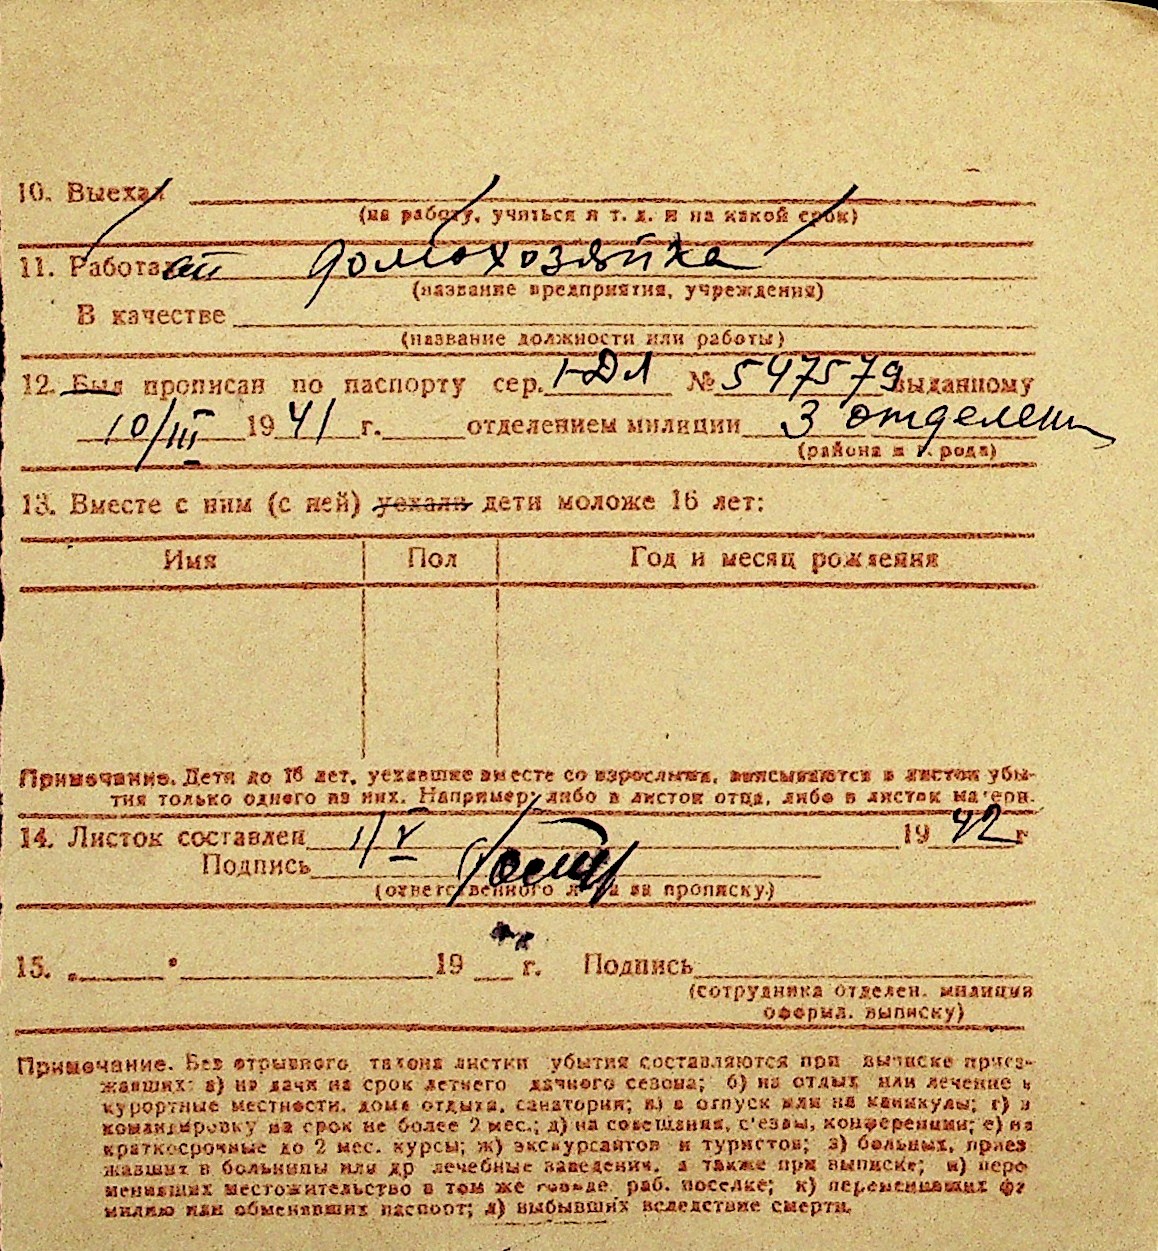 10. Выехал
(на работу, учиться и т. д. и на какой срок)
11. Работает домохозяйка
(название предприятия, учреждения)
В качестве
(название должности или работы)
12. Был прописан по паспорту сер. I-ДЛ № 547579 выданному
10/III 1941 г. отделением милиции 3 отделени
(района и города)
13. Вместе с ним (с ней) уехали дети моложе 16 лет:
Имя Пол Год и месяц рождения
Примечание. Дети до 16 лет, уехавшие вместе со взрослыми, вписываются в листок убы-
тия только одного из них. Например: либо в листок отца, либо в листок матери.
14. Листок составлен 1/V 1942 г
Подпись
(ответственного лица за прописку.)
15. „ " 19 г. Подпись
(сотрудника отделен. милиции
оформл. выписку)
Примечание. Без отрывного талона листки убытия составляются при выписке приез-
жавших: а) на дачи на срок летнего дачного сезона; б) на отдых или лечение в
курортные местности, дома отдыха, санатории; в) в отпуск или на каникулы; г) в
командировку на срок не более 2 мес.; д) на совещания, с'езды, конференции; е) на
краткосрочные до 2 мес. курсы; ж) экскурсантов и туристов; з) больных, приез
жавших в больницы или др лечебные заведения, а также при выписке; и) пере
менивших местожительство в том же городе, раб. поселке; к) переменивших фа
милию или обменявших паспорт; л) выбывших вследствие смерти.